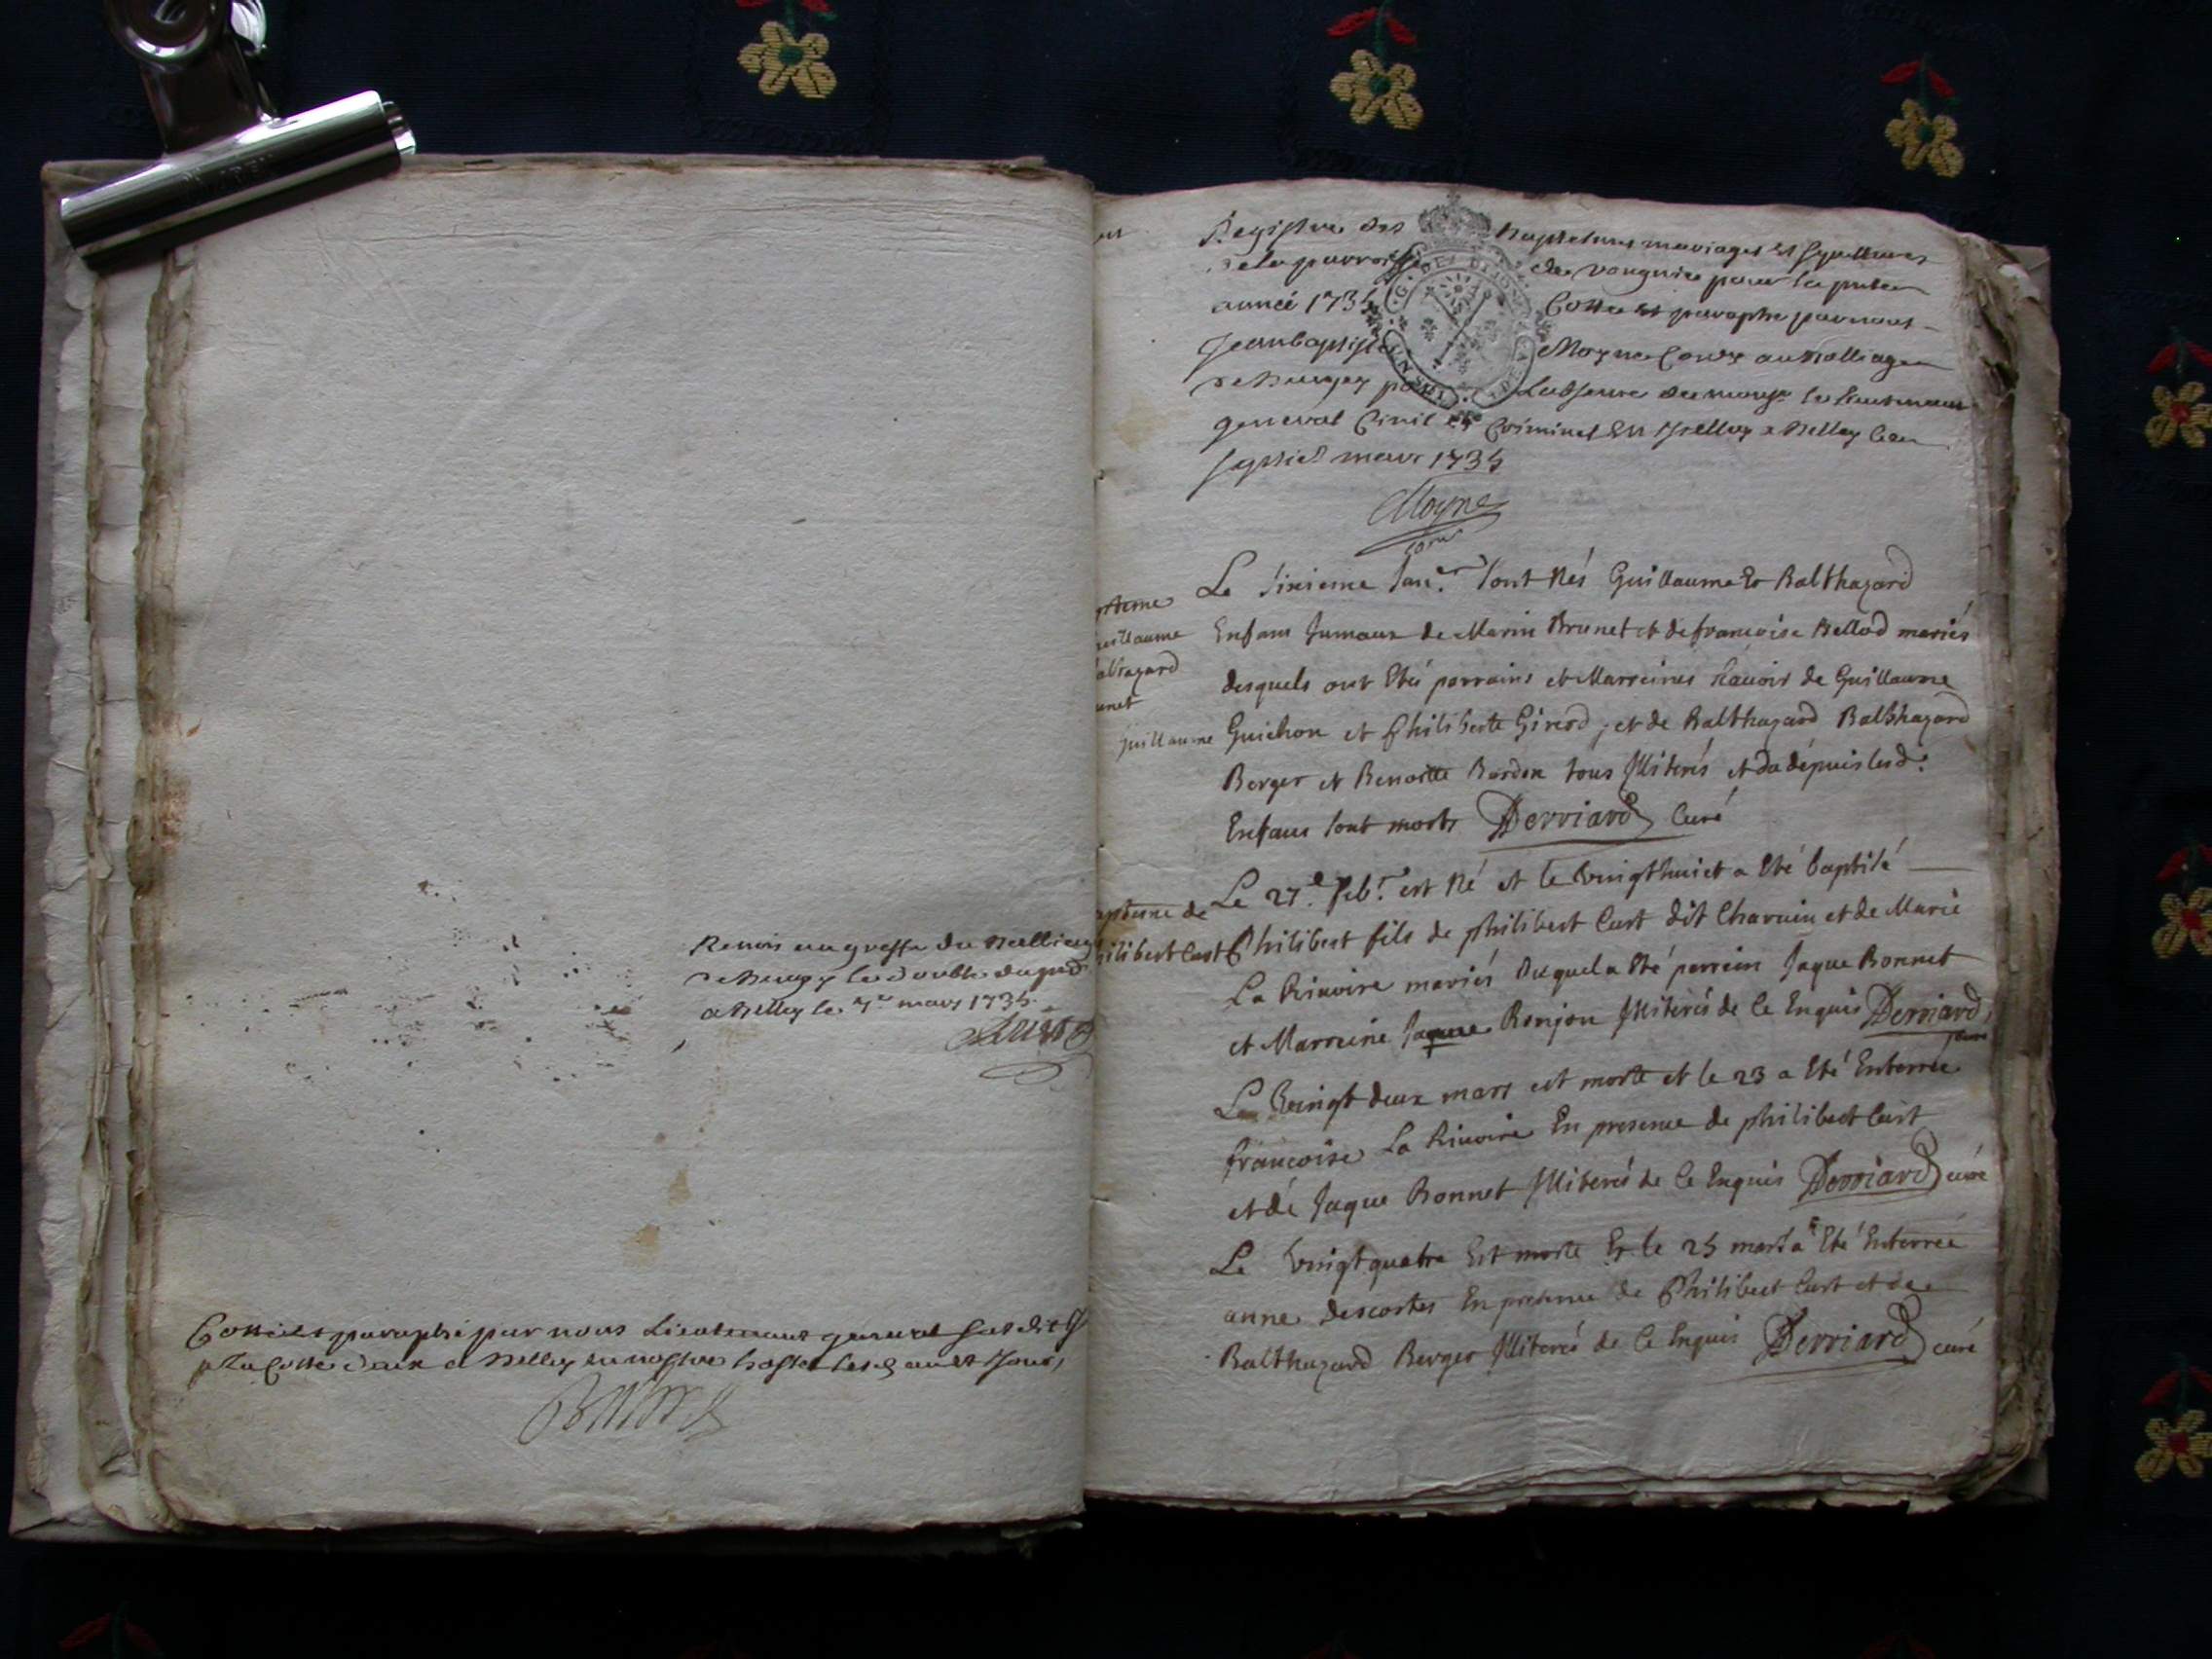 Remis au greffe du Balliag
de Beugey le double du pnt
a Belley le 7e mars 1735
Cotté et paraphé par nous Lieutenant general susdit
en nostre hostel les an et jour
Registre des Baptesmes mariages et sepultures
de la parroisse de Vongnie pour la pnte
année 1735 Cotté et paraphé par nous
Jean baptiste Moyne Conser au Balliage
de Beugey pour L'absence de monsr le lieutenant
general Civil et Criminel en Icelluy a Belley le
sept mars 1735
Moyne
G. DES DIJON
Le sixieme Janer sont Nés Guillaume Et Balthazard
Enfans Jumaux de Marin Brunet et de francoise Bellod mariés
desquels ont Eté parrains et Marreines scauoir de Guillaume
Guichon et Philiberte Girerd, et de Balthazard Balthazard
Berger et Benoitte Bardon tous Illiterés et da dépuis lesd:
Enfans sont morts Derriard Curé
ptême
uillaume
altazard
unet
Guillaume
Le 27e Febr est Né et le Vingthuict a Eté baptisé
Philibert fils de philibert Cust dit Charuin et de Marie
La Riuoire mariés Duquel a Eté perrein Jaque Bonnet
et Marreine Jaque Bonjou Illiterés de Ce Enquis Derriard
curé
aptesme de
hilibert Cust
Le Vingt deux mars est morte et le 23 a Eté Enterrée
francoise La Riuoire En presence de philibert Cust
et de Jaque Bonnet Illiterés de Ce Enquis Derriard curé
Le Vingt quatre Est morte Et le 25 mars a Eté Enterrée
anne Descostes En presence de Philibert Cust et de
Balthazard Berger Illiterés de Ce Enquis Derriard curé